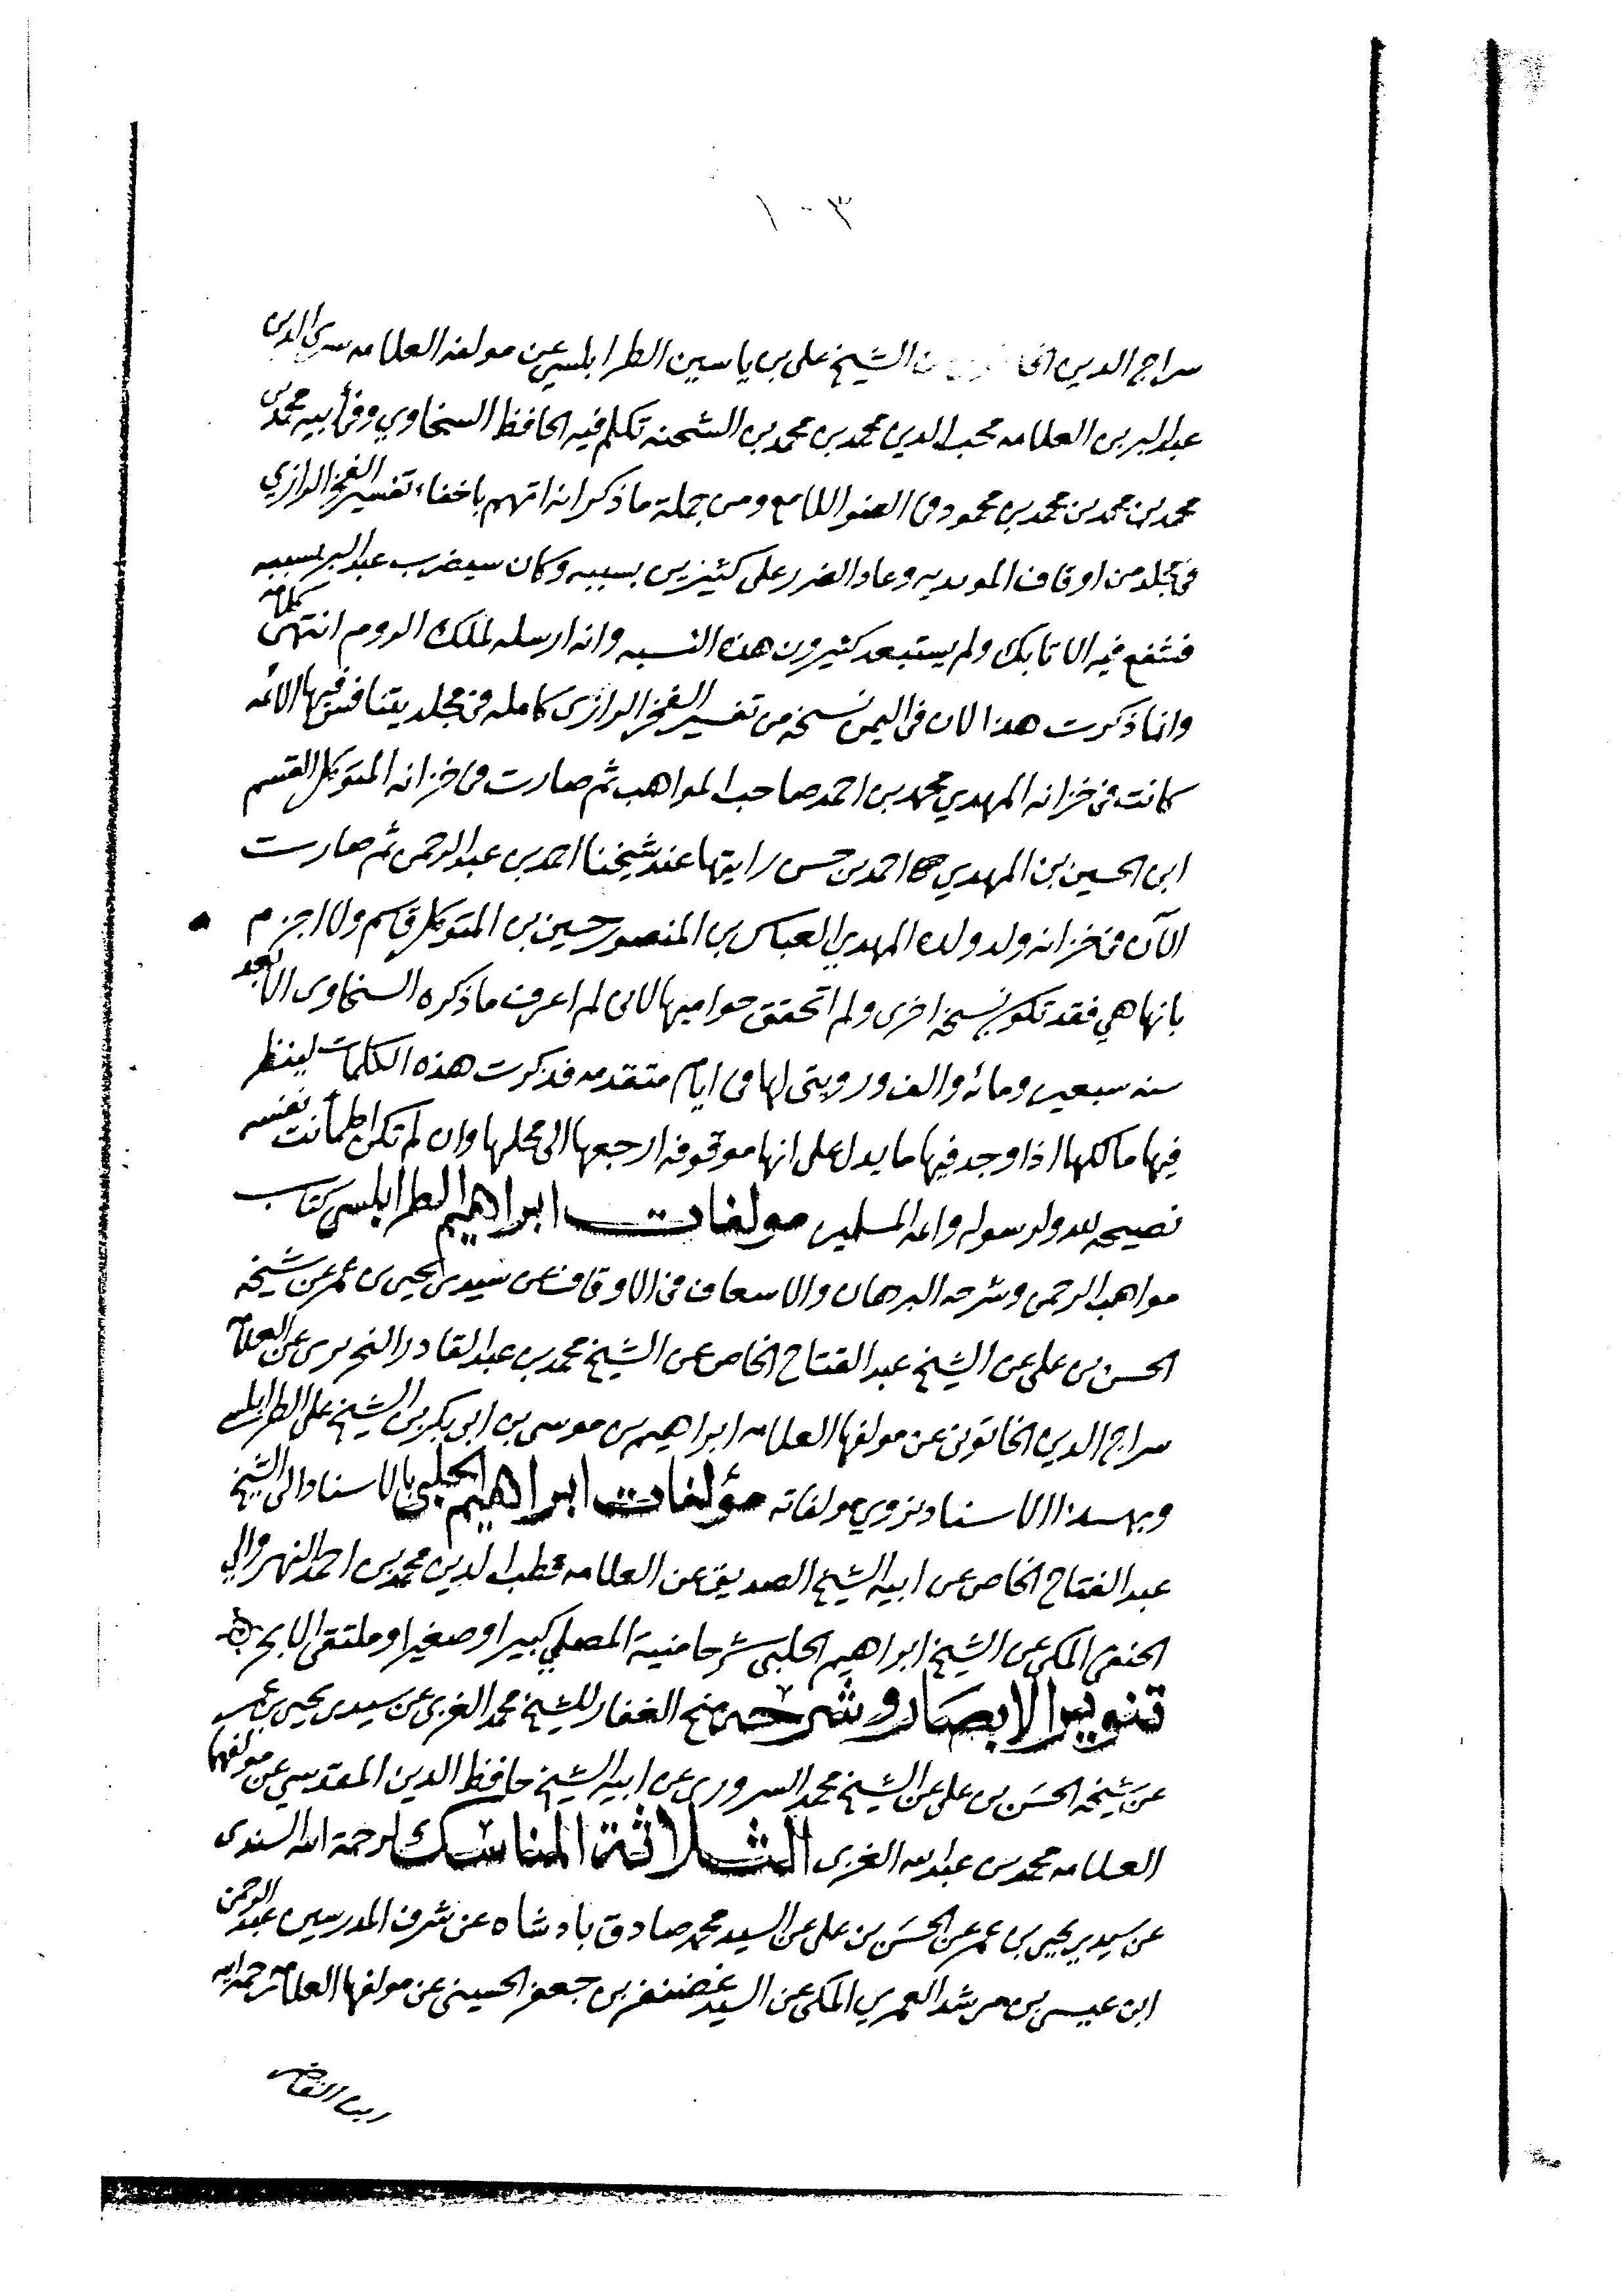 ١٠٣
سراج الدين الشيخ علي بن ياسين الطرابلسي عن مولفه العلامه سري الدين
عبد البر بن العلامه محب الدين محمد بن محمد بن الشحنه تكلم فيه الحافظ السخاوي وفي أبيه محمد بن
محمد بن محمد بن محمد بن محمود في الضو اللامع ومن جملة ما ذكر انه اتهم باخفاء تفسير الفخر الرازي
في مجلد من اوقاف المويديه وعاد الضرر على كثيرين بسببه وكان سيضرب عبد البر بسببه
فشفع فيه الاتابك ولم يستبعد كثيرون هذه النسبه وانه ارسله لملك الروم انتهى كلامه
وانما ذكرت هذا لان في اليمن نسخه من تفسير الفخر الرازي كامله في مجلد يتنافس فيها الائمه
كانت في خزانه المهدي محمد بن احمد صاحب المواهب ثم صارت في خزانه المتوكل القسم
ابن الحسين بن المهدي احمد بن حسن رايتها عند شيخنا احمد بن عبد الرحمن ثم صارت
الآن في خزانه ولد ولده المهدي العباس بن المنصور حسين بن المتوكل قاسم ولا اجزم
بانها هي فقد تكون نسخه اخرى ولم اتحقق حواميها لاني لم اعرف ما ذكره السخاوي الا بعد
سنه سبعين ومائه والف ورويتي لها في ايام متقدمه فذكرت هذه الكلمات لينظر
فيها مالكها اذا وجد فيها ما يدل على انها موقوفه ارجعها الى محلها وان لم تكن اطمأنت نفسه
نصيحه لله ولرسوله وائمه المسلمين مولفات ابراهيم الطرابلسي كتاب
مواهب الرحمن وشرحه البرهان والاسعاف في الاوقاف عن سيدي يحيى بن عمر عن شيخه
الحسن بن علي عن الشيخ عبد الفتاح الخاص عن الشيخ محمد بن عبد القادر النحريري عن العلامه
سراج الدين الخانوتي عن مولفها العلامه ابراهيم بن موسى بن ابي بكر بن الشيخ علي الطرابلسي
وبهذا الاسناد نروي مولفاته مؤلفات ابراهيم الحلبي بالاسناد الى الشيخ
عبد الفتاح الخاص عن ابيه الشيخ الصديق عن العلامه قطب الدين محمد بن احمد النهروالي
الحنفي المكي عن الشيخ ابراهيم الحلبي شرحا منية المصلي كبيرا وصغيرا وملتقى الابحر
تنوير الابصار وشرحه منح الغفار للشيخ محمد الغزي عن سيدي يحيى بن عمر
عن شيخه الحسن بن علي عن الشيخ محمد السروري عن ابيه الشيخ حافظ الدين المقدسي عن مولفها
العلامه محمد بن عبد الله الغزي الثلاثة المناسك لرحمة الله السندي
عن سيدي يحيى بن عمر عن الحسن بن علي عن السيد محمد صادق بادشاه عن شرف المدرسين عبد الرحمن
ابن عيسى بن مرشد العمري المكي عن السيد غضنفر بن جعفر الحسيني عن مولفها العلامه رحمة الله